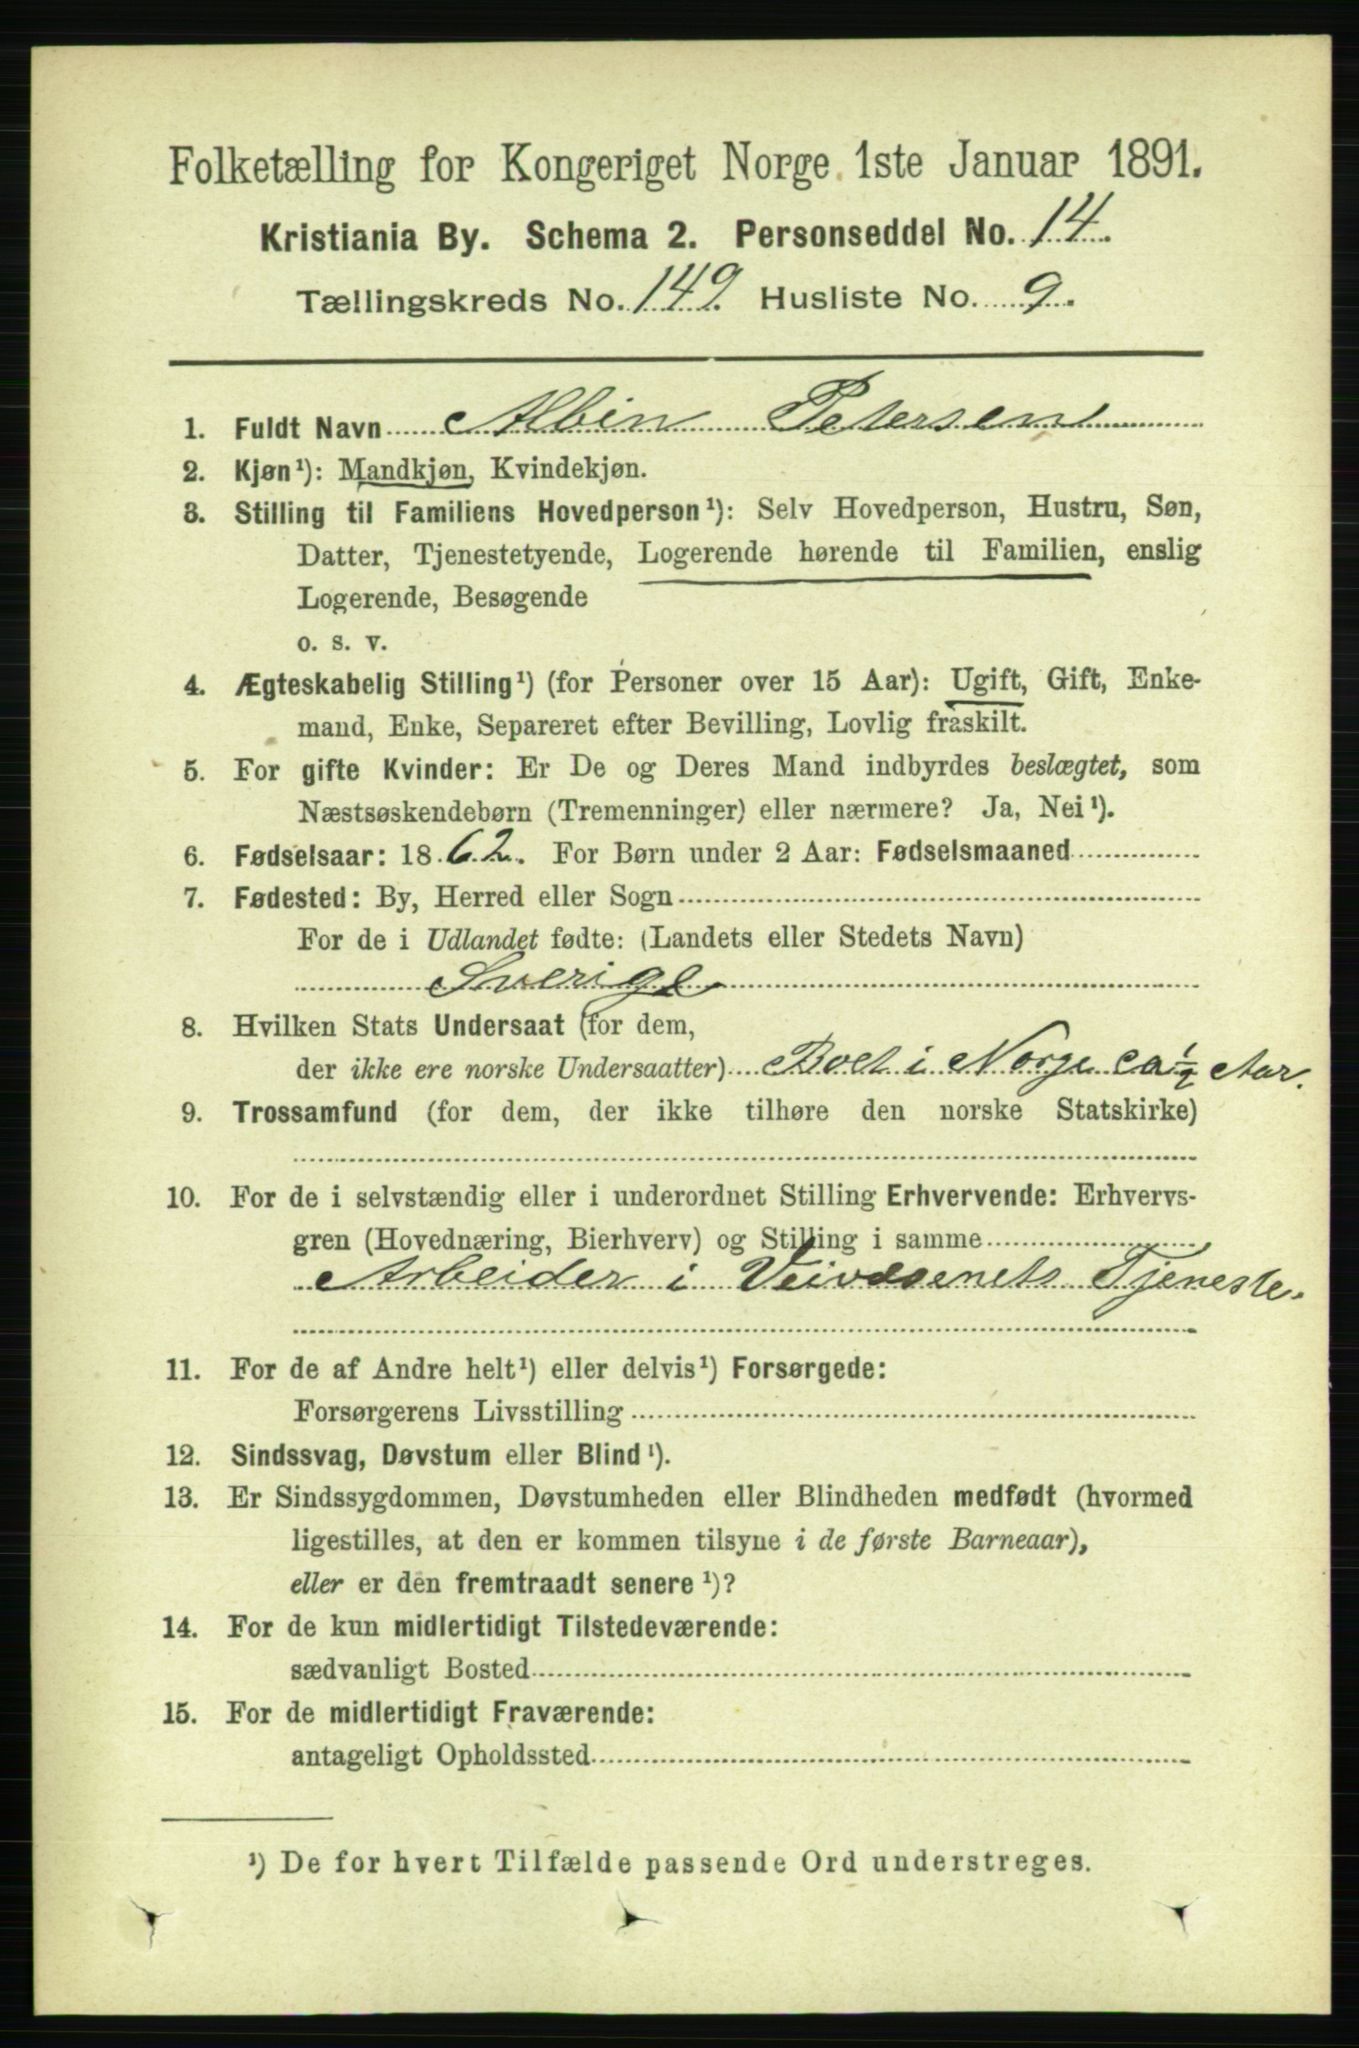 Folketælling for Kongeriget Norge 1ste Januar 1891.
Kristiania By. Schema 2. Personseddel No. 14.
Tællingskreds No. 149. Husliste No. 9.
1. Fuldt Navn Albin Petersen
2. Kjøn¹): Mandkjøn, Kvindekjøn.
3. Stilling til Familiens Hovedperson¹): Selv Hovedperson, Hustru, Søn,
Datter, Tjenestetyende, Logerende hørende til Familien, enslig
Logerende, Besøgende
o. s. v.
4. Ægteskabelig Stilling¹) (for Personer over 15 Aar): Ugift, Gift, Enke-
mand, Enke, Separeret efter Bevilling, Lovlig fraskilt.
5. For gifte Kvinder: Er De og Deres Mand indbyrdes beslægtet, som
Næstsøskendebørn (Tremenninger) eller nærmere? Ja, Nei¹).
6. Fødselsaar: 1862. For Børn under 2 Aar: Fødselsmaaned
7. Fødested: By, Herred eller Sogn
For de i Udlandet fødte: (Landets eller Stedets Navn)
Sverige
8. Hvilken Stats Undersaat (for dem,
der ikke ere norske Undersaatter) Boet i Norge ca ½ Aar.
9. Trossamfund (for dem, der ikke tilhøre den norske Statskirke)
10. For de i selvstændig eller i underordnet Stilling Erhvervende: Erhvervs-
gren (Hovednæring, Bierhverv) og Stilling i samme
Arbeider i Veivæsenets Tjeneste.
11. For de af Andre helt¹) eller delvis¹) Forsørgede:
Forsørgerens Livsstilling
12. Sindssvag, Døvstum eller Blind¹).
13. Er Sindssygdommen, Døvstumheden eller Blindheden medfødt (hvormed
ligestilles, at den er kommen tilsyne i de første Barneaar),
eller er den fremtraadt senere¹)?
14. For de kun midlertidigt Tilstedeværende:
sædvanligt Bosted
15. For de midlertidigt Fraværende:
antageligt Opholdssted
¹) De for hvert Tilfælde passende Ord understreges.